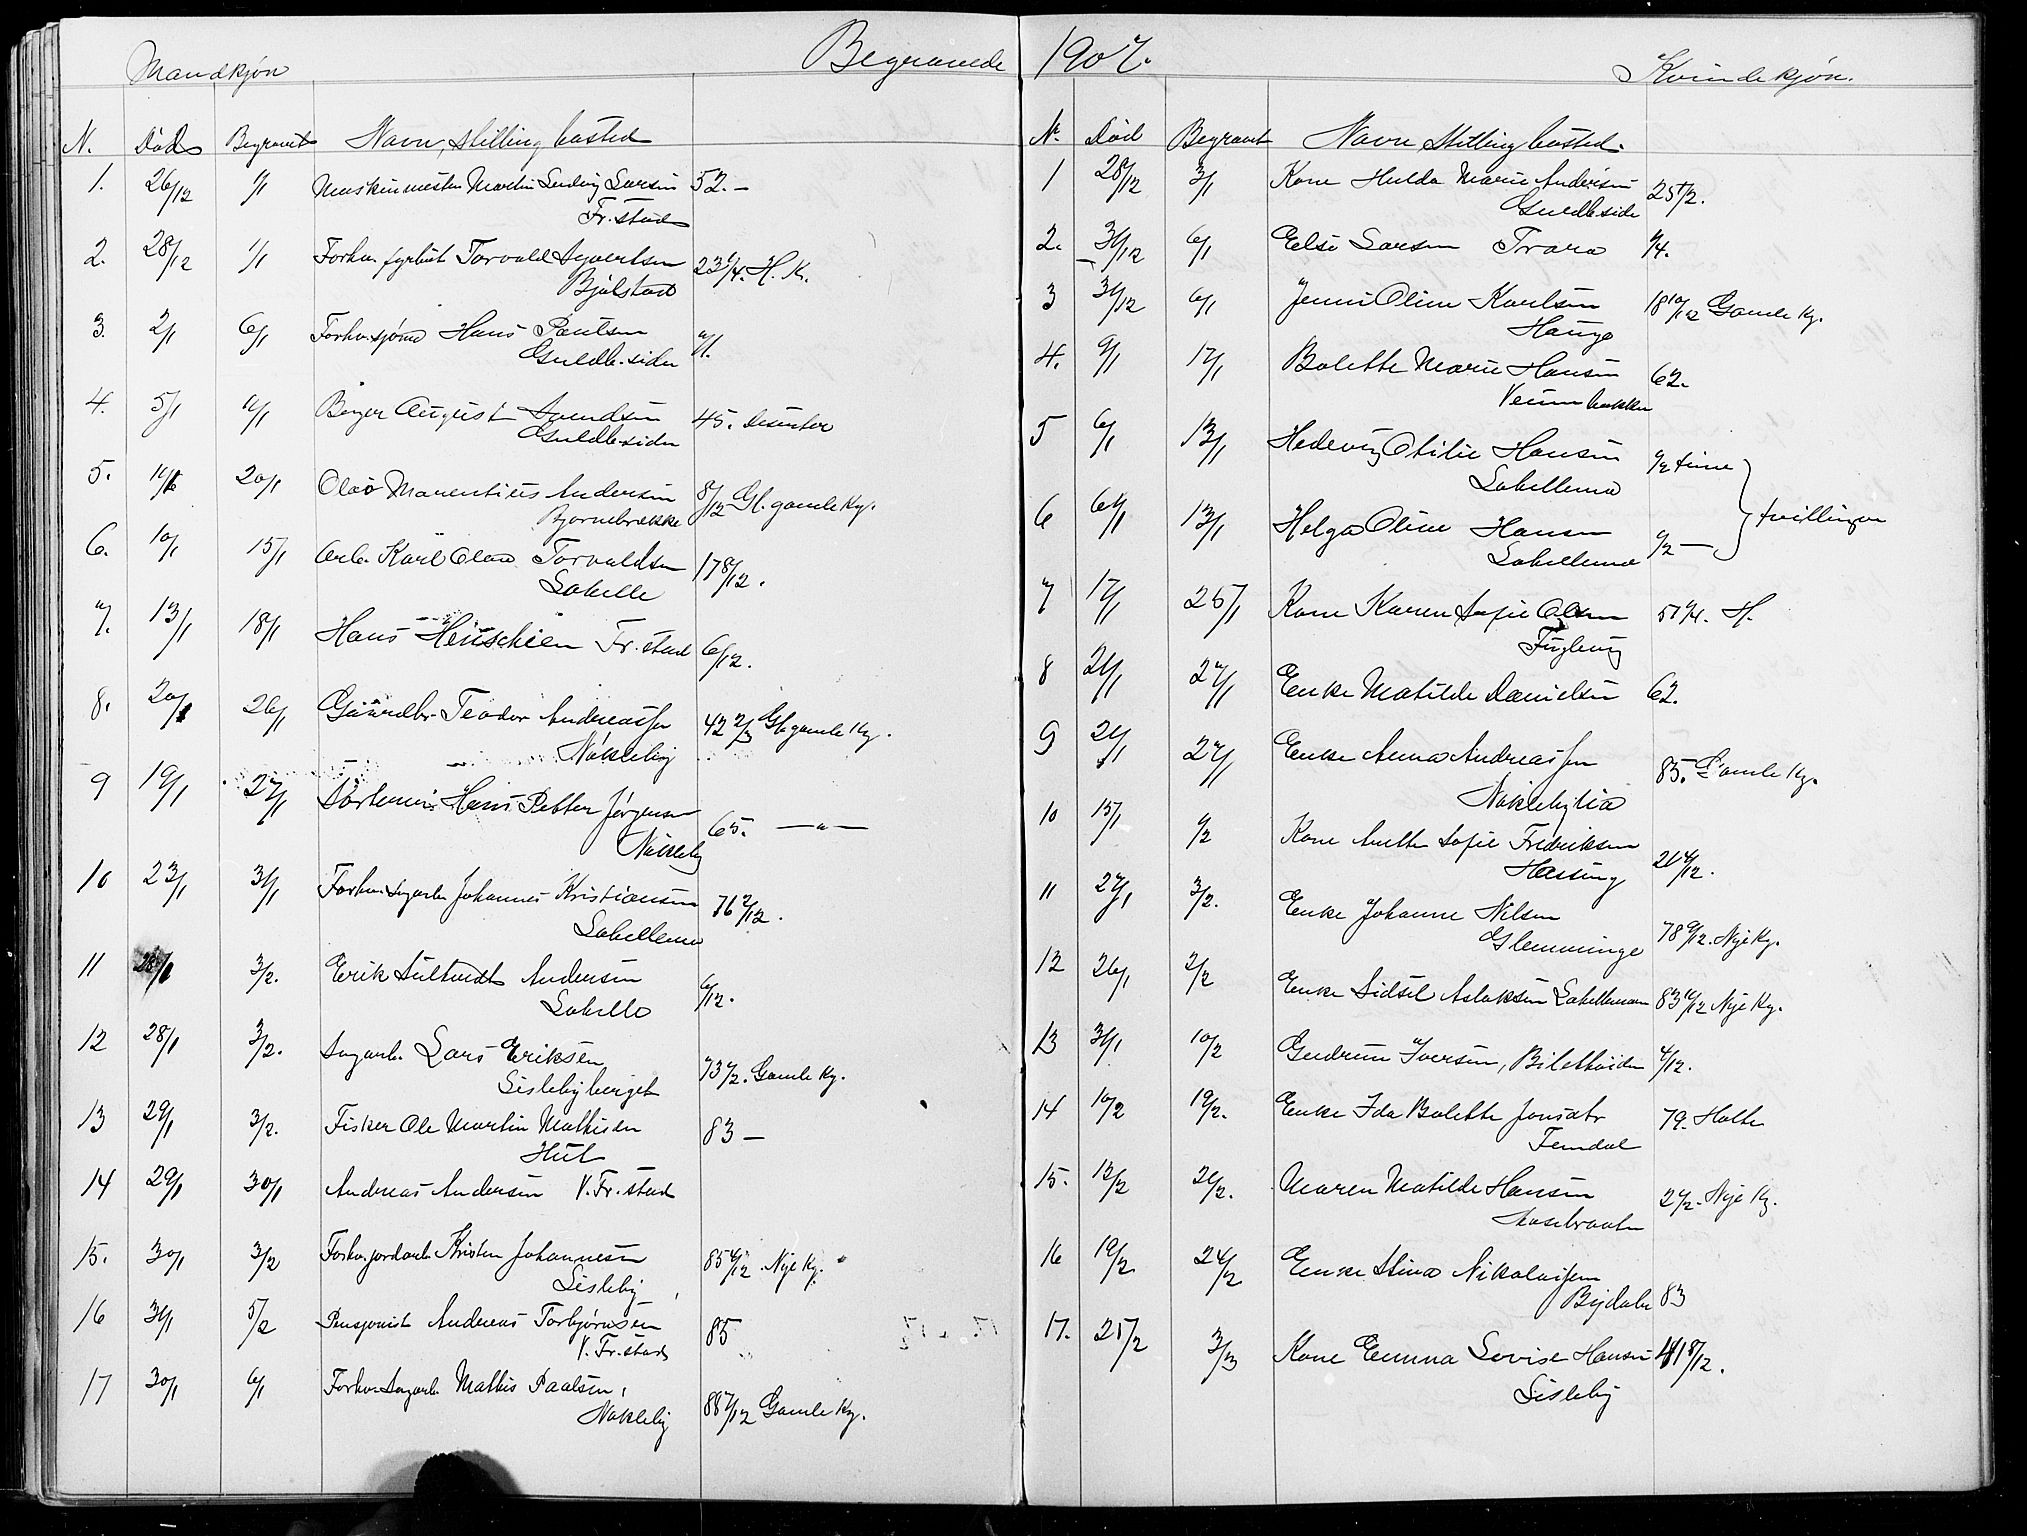 Mandkjøn Begravede
N. Død Begravet Navn, stilling bosted
1. 26/12 1/1 Maskinmester Martin Ludvig Larsen 52. –
Fr.stad
2. 28/12 1/1 Forhv. fyrbøt Torvald Syvertsen 23 1/4. H. K.
Bjølstad
3. 2/1 6/1 Forhv. sjømd Hans Paulsen
Guldb.siden
4. 5/1 11/1 Birger August Svendsen 45. Disenter
Guldb.siden
5. 20/1 Olav Marentius Andersen 8/12 Gl. gamle Kg.
Bjørnebrække
6. 10/1 15/1 Arb. Karl Olav Torvaldsen 17 8/12.
Labelle
7. 13/1 18/1 Hans Henschien Fr.stad 6/12.
8. 20/1 26/1 Gaardbr. Teodor Andreassen 42 2/3 Gl. gamle Kg.
Nøkleby
9 19/1 27/1 Hans Petter Jørgensen 65. –"–
Nøkleby
10 23/1 31/1 Forhv. Sagarb. Johannes Kristiansen 76 2/12.
Labellemo
11 28/1 3/2. Erik Andersen
Labelle
12 28/1 3/2. Sagarb. Lars Eriksen 73 1/2. Gamle Kg.
Lislebyberget
13 29/1 3/2. Fisker Ole Martin Mathisen 83 –
Hut
14 29/1 30/1 Andreas Andersen V. Fr.stad
15. 30/1 3/2 Forhv. jordarb. Kristen Johannesen Nye Kg.
Lisleby
16 31/1 5/2 Pensjonist Andreas Torbjørnsen 85
V. Fr.stad
17 30/1 6/1 Forhv. Sagarb. Mathis Paalsen, 88 7/12 Gamle Kg.
Nøkleby
1907. Kvindekjøn.
Nr. Død Begravet Navn Stilling bosted.
1 28/12 3/1 Kone Hulda Marie Andersen 25 1/2.
Guldb.side
2. 31/12 6/1 Else Larsen Trara 1/4.
3 31/12 6/1 Jenni Oline Karlsen 18 10/12 Gamle Kg.
Hauge
4. 9/1 17/1 Bolette Marie Hansen 62.
Veumbakken
5 6/1 13/1 Hedevig Otilie Hansen 1/2 time
Labellemo
tvillinger
6 6/1 13/1 Helga Oline Hansen 1/2 –
Labellemo
7 17/1 25/1 Kone Karen Sofie Olsen 57 1/4. H.
Fuglevig
8 21/1 27/1 Enke Matilde Danielsen 62.
9 21/1 27/1 Enke Anna Andreassen 85. Gamle Kg.
Nøklebylia
10 15/1 1/2 Kone Anette Sofie Fredriksen
Hassing
11 27/1 3/2. Enke Johanne Nilsen 78 9/12. Nye Kg.
Glemminge
12 26/1 2/2 Enke Sidsel Aslaksen Labellemoen 83 10/12 Nye Kg.
13 31/1 10/2 Gudrun Iversen,
14 10/2 19/2. Enke Ida Bolette Jonsatr 79. Holte
Femdal
15. 12/2 21/2. Maren Matilde Hansen 2 1/2. Nye Kg.
Aasebraaten
16 19/2 24/2 Enke Stina Nikolaisen
Bydalen 83
17. 25/2 3/3 Kone Emma Lovise Hansen 41 8/12.
Lisleby